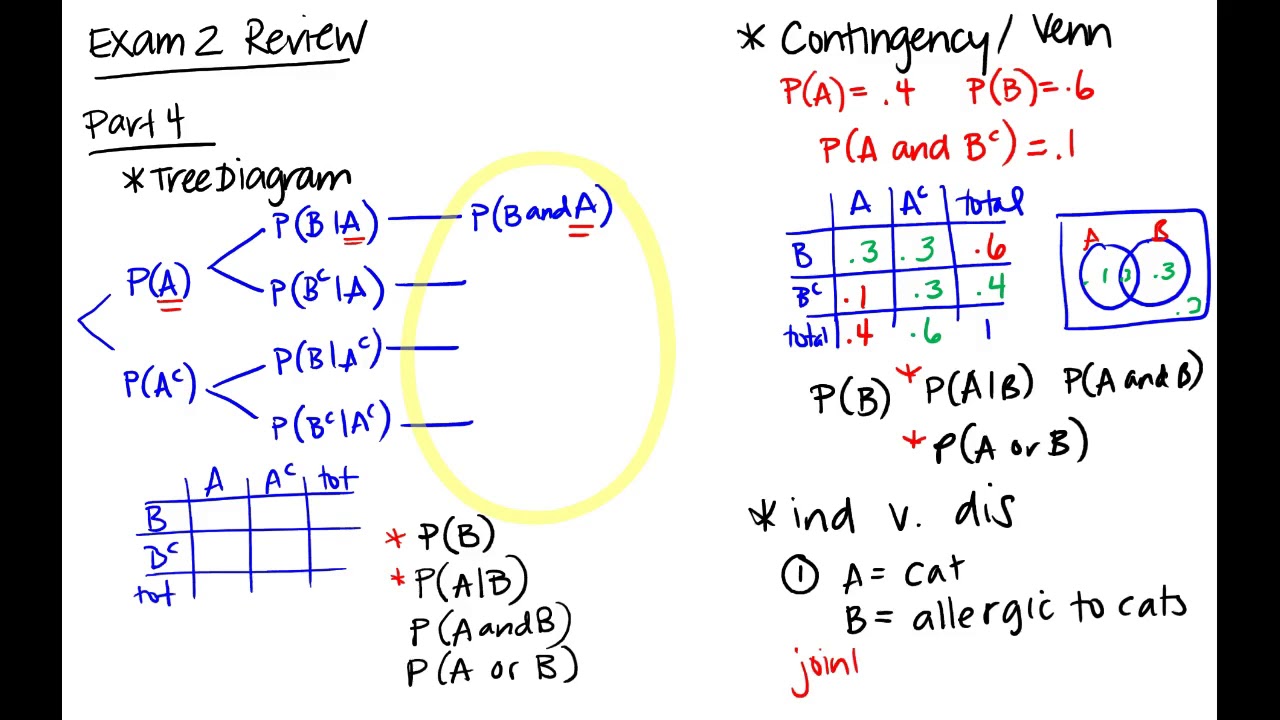 Exam 2 Review
Part 4
* Tree Diagram
P(B|A) P(B and A)
P(A)
P(Bᶜ|A)
P(B|Aᶜ)
P(Aᶜ)
P(Bᶜ|Aᶜ)
A Aᶜ tot
B
Bᶜ
tot
* P(B)
* P(A|B)
P(A and B)
P(A or B)
* Contingency/Venn
P(A)= .4 P(B)=.6
P(A and Bᶜ)=.1
A Aᶜ total
B .3 .3 .6
Bᶜ .1 .3 .4
total .4 .6 1
A B
.1 .3
P(B) * P(A|B) P(A and B)
* P(A or B)
* ind v. dis
① A= cat
B= allergic to cats
joinl